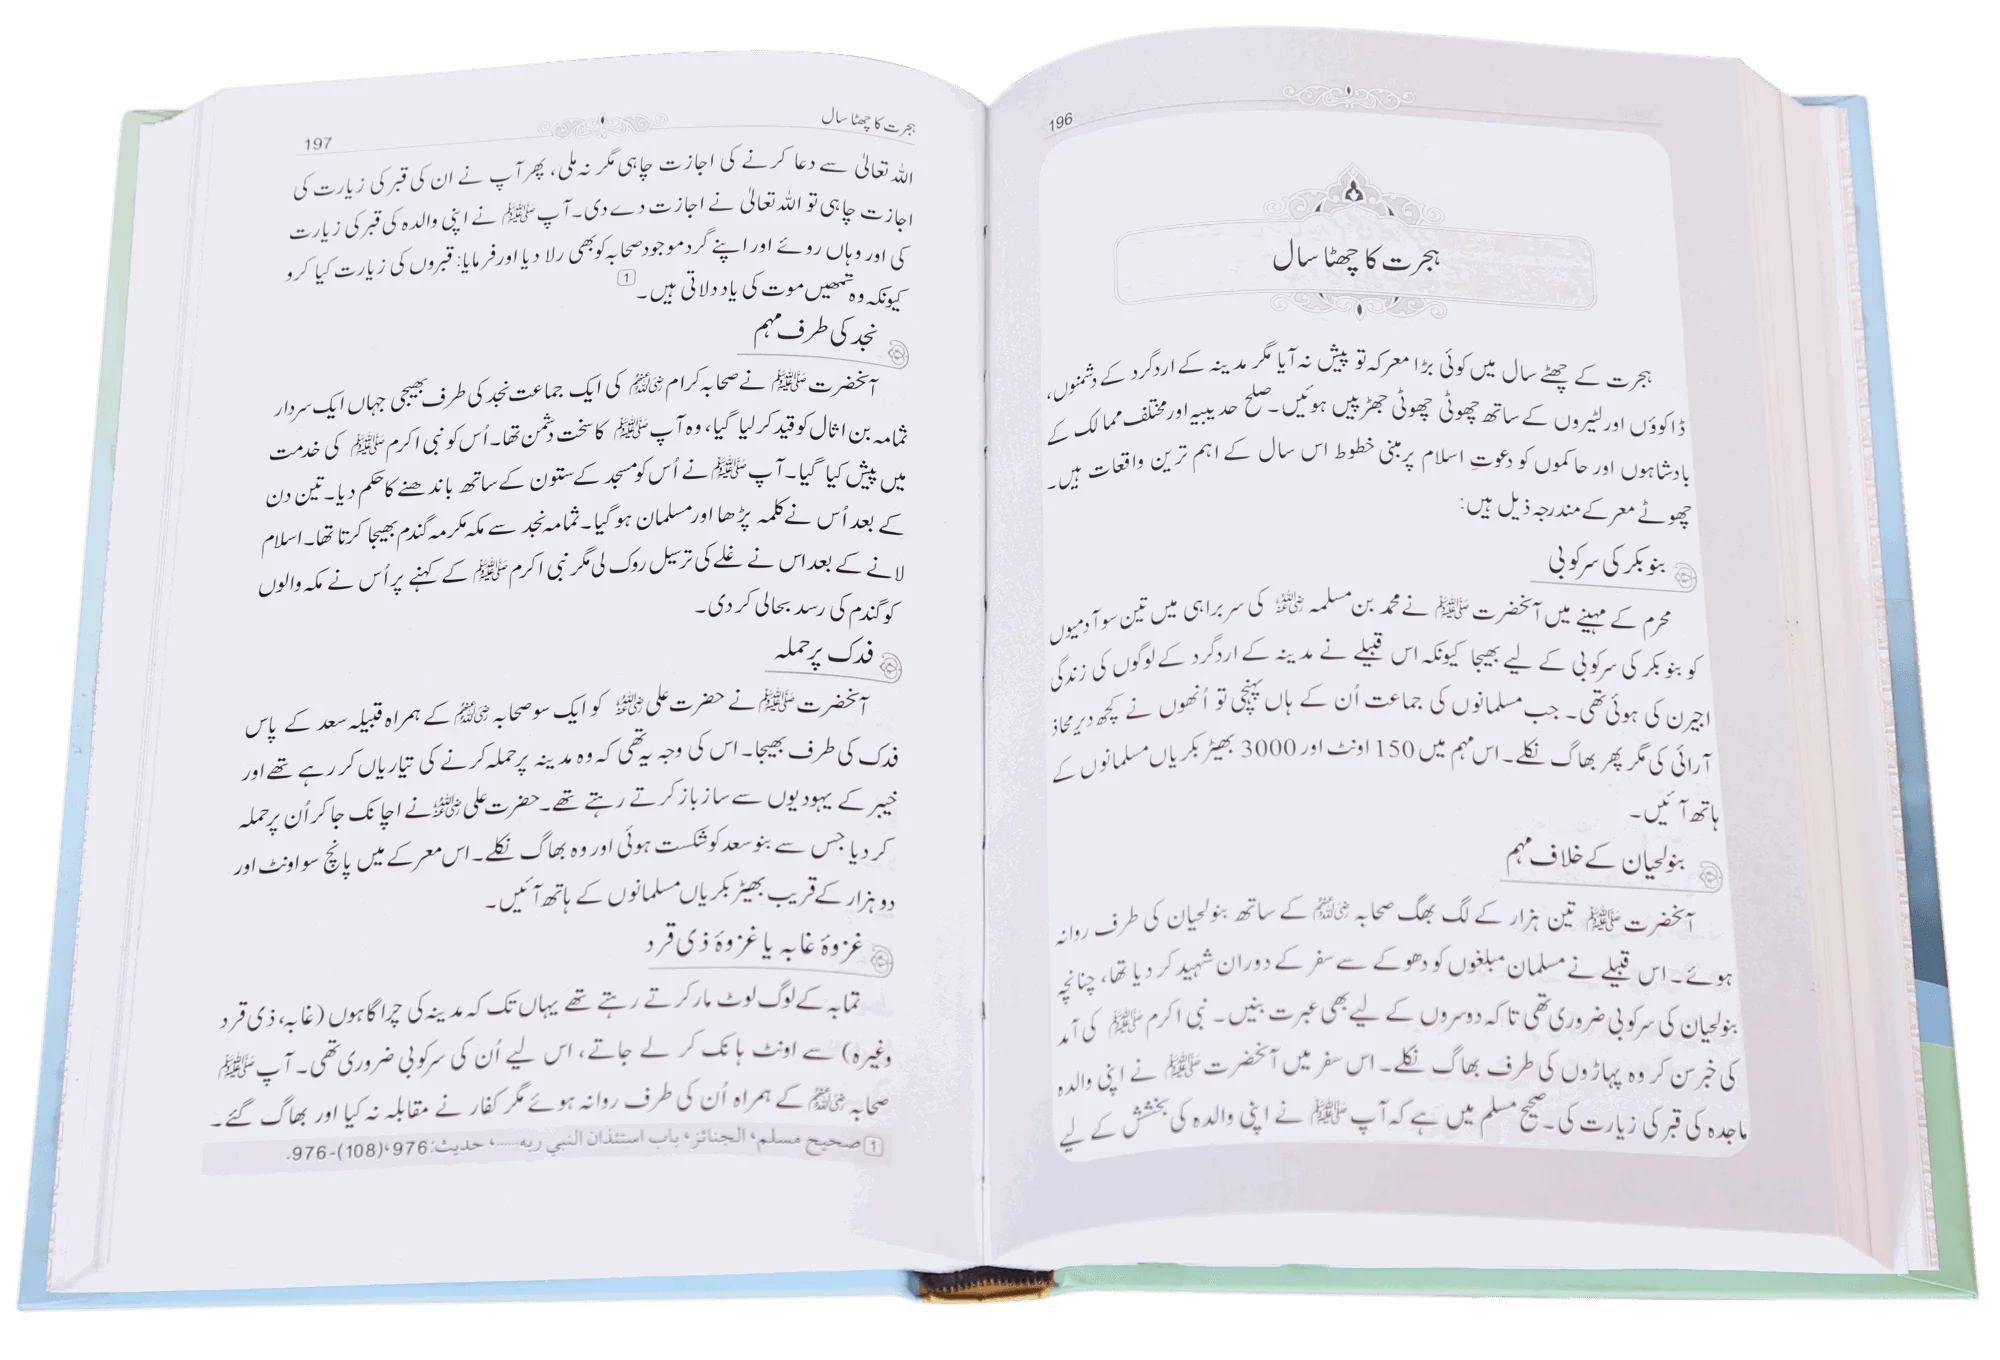 196
ہجرت کا چھٹا سال
ہجرت کے چھٹے سال میں کوئی بڑا معرکہ تو پیش نہ آیا مگر مدینہ کے اردگرد کے دشمنوں،
ڈاکوؤں اور لٹیروں کے ساتھ چھوٹی چھوٹی جھڑپیں ہوئیں۔ صلح حدیبیہ اور مختلف ممالک کے
بادشاہوں اور حاکموں کو دعوتِ اسلام پر مبنی خطوط اس سال کے اہم ترین واقعات ہیں۔
چھوٹے معرکے مندرجہ ذیل ہیں:
بنو بکر کی سرکوبی
محرم کے مہینے میں آنحضرت ﷺ نے محمد بن مسلمہ رضی اللہ عنہ کی سربراہی میں تین سو آدمیوں
کو بنو بکر کی سرکوبی کے لیے بھیجا کیونکہ اس قبیلے نے مدینہ کے اردگرد کے لوگوں کی زندگی
اجیرن کی ہوئی تھی۔ جب مسلمانوں کی جماعت اُن کے ہاں پہنچی تو اُنھوں نے کچھ دیر محاذ
آرائی کی مگر پھر بھاگ نکلے۔ اس مہم میں 150 اونٹ اور 3000 بھیڑ بکریاں مسلمانوں کے
ہاتھ آئیں۔
بنو لحیان کے خلاف مہم
آنحضرت ﷺ تین ہزار کے لگ بھگ صحابہ رضی اللہ عنہم کے ساتھ بنو لحیان کی طرف روانہ
ہوئے۔ اس قبیلے نے مسلمان مبلغوں کو دھوکے سے سفر کے دوران شہید کر دیا تھا، چنانچہ
بنو لحیان کی سرکوبی ضروری تھی تاکہ دوسروں کے لیے بھی عبرت بنیں۔ نبی اکرم ﷺ کی آمد
کی خبر سن کر وہ پہاڑوں کی طرف بھاگ نکلے۔ اس سفر میں آنحضرت ﷺ نے اپنی والدہ
ماجدہ کی قبر کی زیارت کی۔ صحیح مسلم میں ہے کہ آپ ﷺ نے اپنی والدہ کی بخشش کے لیے
ہجرت کا چھٹا سال
197
اللہ تعالیٰ سے دعا کرنے کی اجازت چاہی مگر نہ ملی، پھر آپ نے ان کی قبر کی زیارت کی
اجازت چاہی تو اللہ تعالیٰ نے اجازت دے دی۔ آپ ﷺ نے اپنی والدہ کی قبر کی زیارت
کی اور وہاں روئے اور اپنے گرد موجود صحابہ کو بھی رلا دیا اور فرمایا: قبروں کی زیارت کیا کرو
کیونکہ وہ تمھیں موت کی یاد دلاتی ہیں۔ 1
نجد کی طرف مہم
آنحضرت ﷺ نے صحابہ کرام رضی اللہ عنہم کی ایک جماعت نجد کی طرف بھیجی جہاں ایک سردار
ثمامہ بن اثال کو قید کر لیا گیا، وہ آپ ﷺ کا سخت دشمن تھا۔ اُس کو نبی اکرم ﷺ کی خدمت
میں پیش کیا گیا۔ آپ ﷺ نے اُس کو مسجد کے ستون کے ساتھ باندھنے کا حکم دیا۔ تین دن
کے بعد اُس نے کلمہ پڑھا اور مسلمان ہو گیا۔ ثمامہ نجد سے مکہ مکرمہ گندم بھیجا کرتا تھا۔ اسلام
لانے کے بعد اس نے غلے کی ترسیل روک لی مگر نبی اکرم ﷺ کے کہنے پر اُس نے مکہ والوں
کو گندم کی رسد بحالی کر دی۔
فدک پر حملہ
آنحضرت ﷺ نے حضرت علی رضی اللہ عنہ کو ایک سو صحابہ رضی اللہ عنہم کے ہمراہ قبیلہ سعد کے پاس
فدک کی طرف بھیجا۔ اس کی وجہ یہ تھی کہ وہ مدینہ پر حملہ کرنے کی تیاریاں کر رہے تھے اور
خیبر کے یہودیوں سے ساز باز کرتے رہتے تھے۔ حضرت علی رضی اللہ عنہ نے اچانک جا کر اُن پر حملہ
کر دیا جس سے بنو سعد کو شکست ہوئی اور وہ بھاگ نکلے۔ اس معرکے میں پانچ سو اونٹ اور
دو ہزار کے قریب بھیڑ بکریاں مسلمانوں کے ہاتھ آئیں۔
غزوۂ غابہ یا غزوۂ ذی قرد
تمابہ کے لوگ لوٹ مار کرتے رہتے تھے یہاں تک کہ مدینہ کی چراگاہوں (غابہ، ذی قرد
وغیرہ) سے اونٹ ہانک کر لے جاتے، اس لیے اُن کی سرکوبی ضروری تھی۔ آپ ﷺ
صحابہ رضی اللہ عنہم کے ہمراہ اُن کی طرف روانہ ہوئے مگر کفار نے مقابلہ نہ کیا اور بھاگ گئے۔
1 صحيح مسلم، الجنائز، باب استئذان النبي ربه......، حديث: 976،(108)-976.